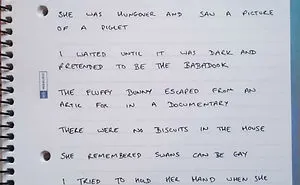 SHE WAS HUNGOVER AND SAW A PICTURE
OF A PIGLET
I WAITED UNTIL IT WAS DARK AND
PRETENDED TO BE THE BABADOOK
THE FLUFFY BUNNY ESCAPED FROM AN
ARTIC FOX IN A DOCUMENTARY
THERE WERE NO BISCUITS IN THE HOUSE
SHE REMEMBERED SWANS CAN BE GAY
I TRIED TO HOLD HER HAND WHEN SHE